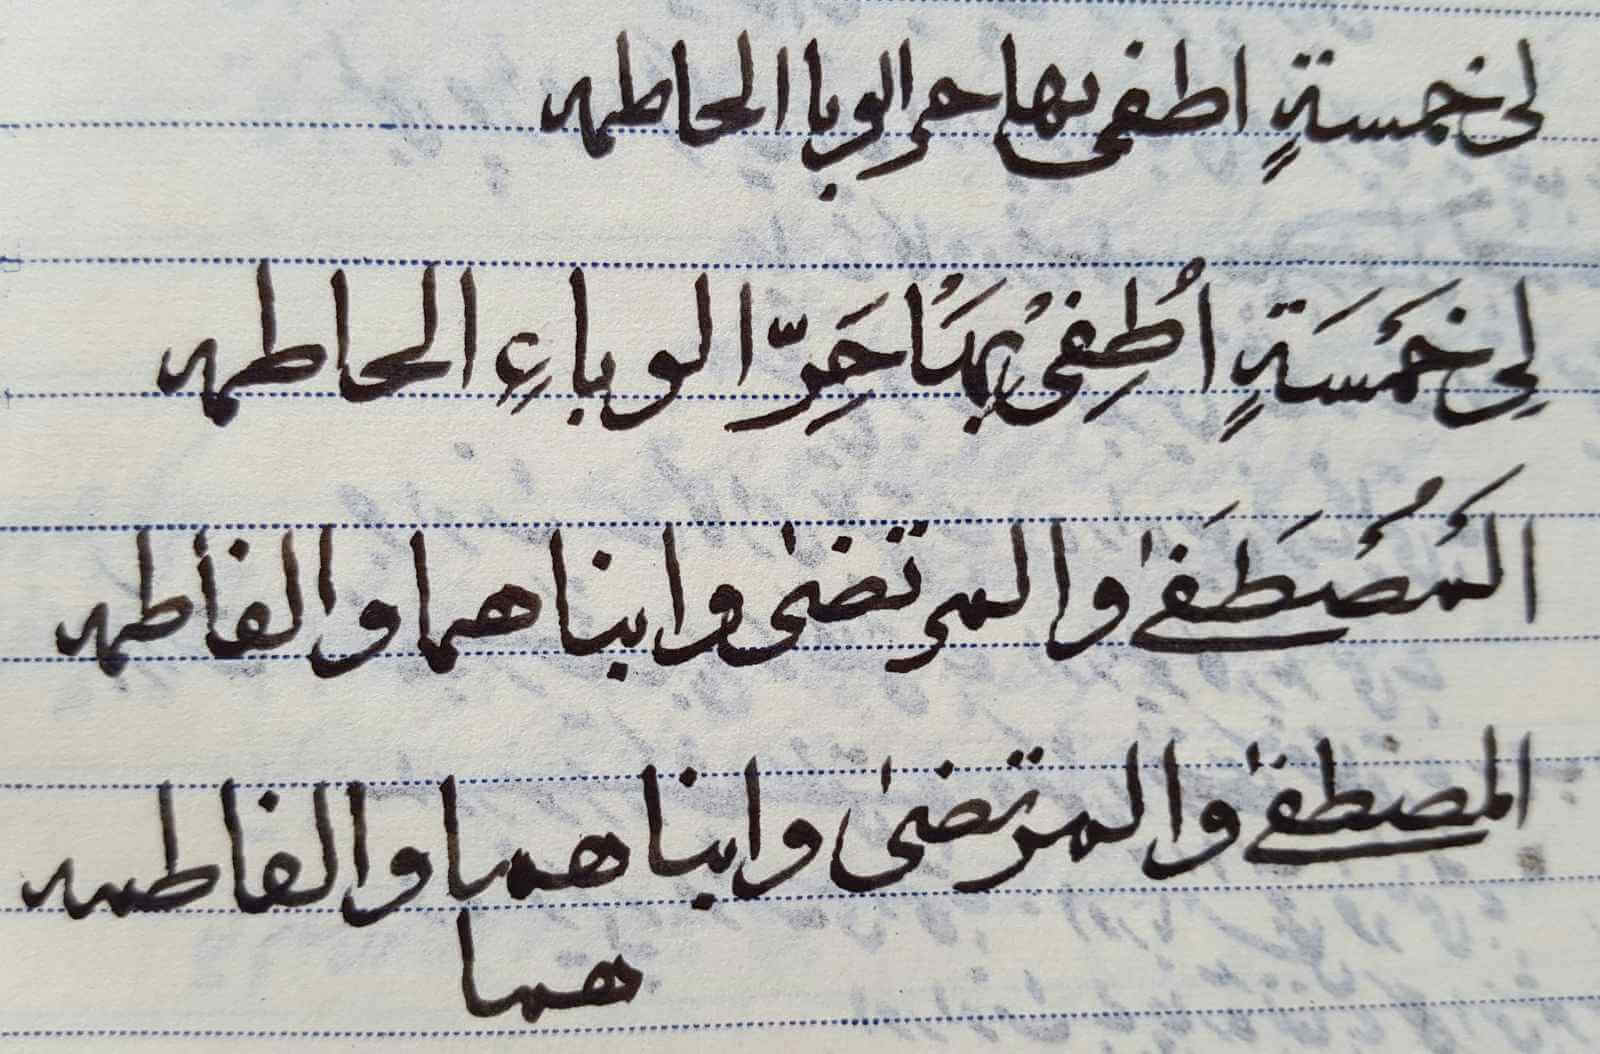 لى خمسةٍ اطفى بها حر الوبا الحاطمه
لِى خَمْسَةٍ أُطْفِىْ بِهَا حَرِّ الوباءِ الحاطمه
المُصْطَفىٰ والمرتضىٰ وابناهما والفاطمه
المصطفىٰ والمرتضىٰ وابناهما والفاطمه
هما